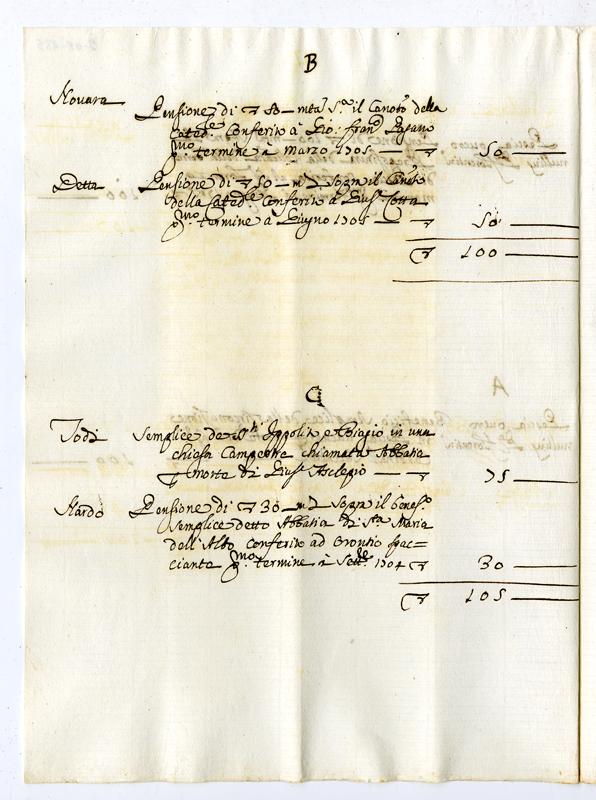 B
Novara Pensione di ▽ 50 mta Sa il Canoto della
Cated.le Conferito à Gio: Fran.co
p.mo termine à Marzo 1705 — ▽ 50
Detta Pensione di ▽ 50 — m.ta Sopra il Canoto
della Cated.le Conferito à Gius.e Cotta
p.mo termine à Giugno 1705 — ▽ 50
▽ 100
C
Todi Semplice de S.ti Ippolito e Biagio in una
chiesa Campestre chiamata Abbatia
morte di Gius.e Asclepio — ▽ 75
Nardo Pensione di ▽ 30 — m.ta Sopra il benef.o
semplice detto Abbatia di S.ta Maria
dell'Alto Conferito ad Orontio Spac=
ciante p.mo termine à Sett.bre 1704 ▽ 30
▽ 105
A